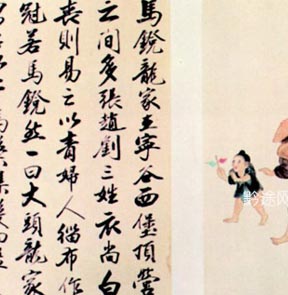 馬鐙龍家在寧谷西堡頂營
之間多張趙劉三姓衣尚白
喪則易之以青婦人緇布作
冠若馬鐙然一曰大頭龍家
黔途网